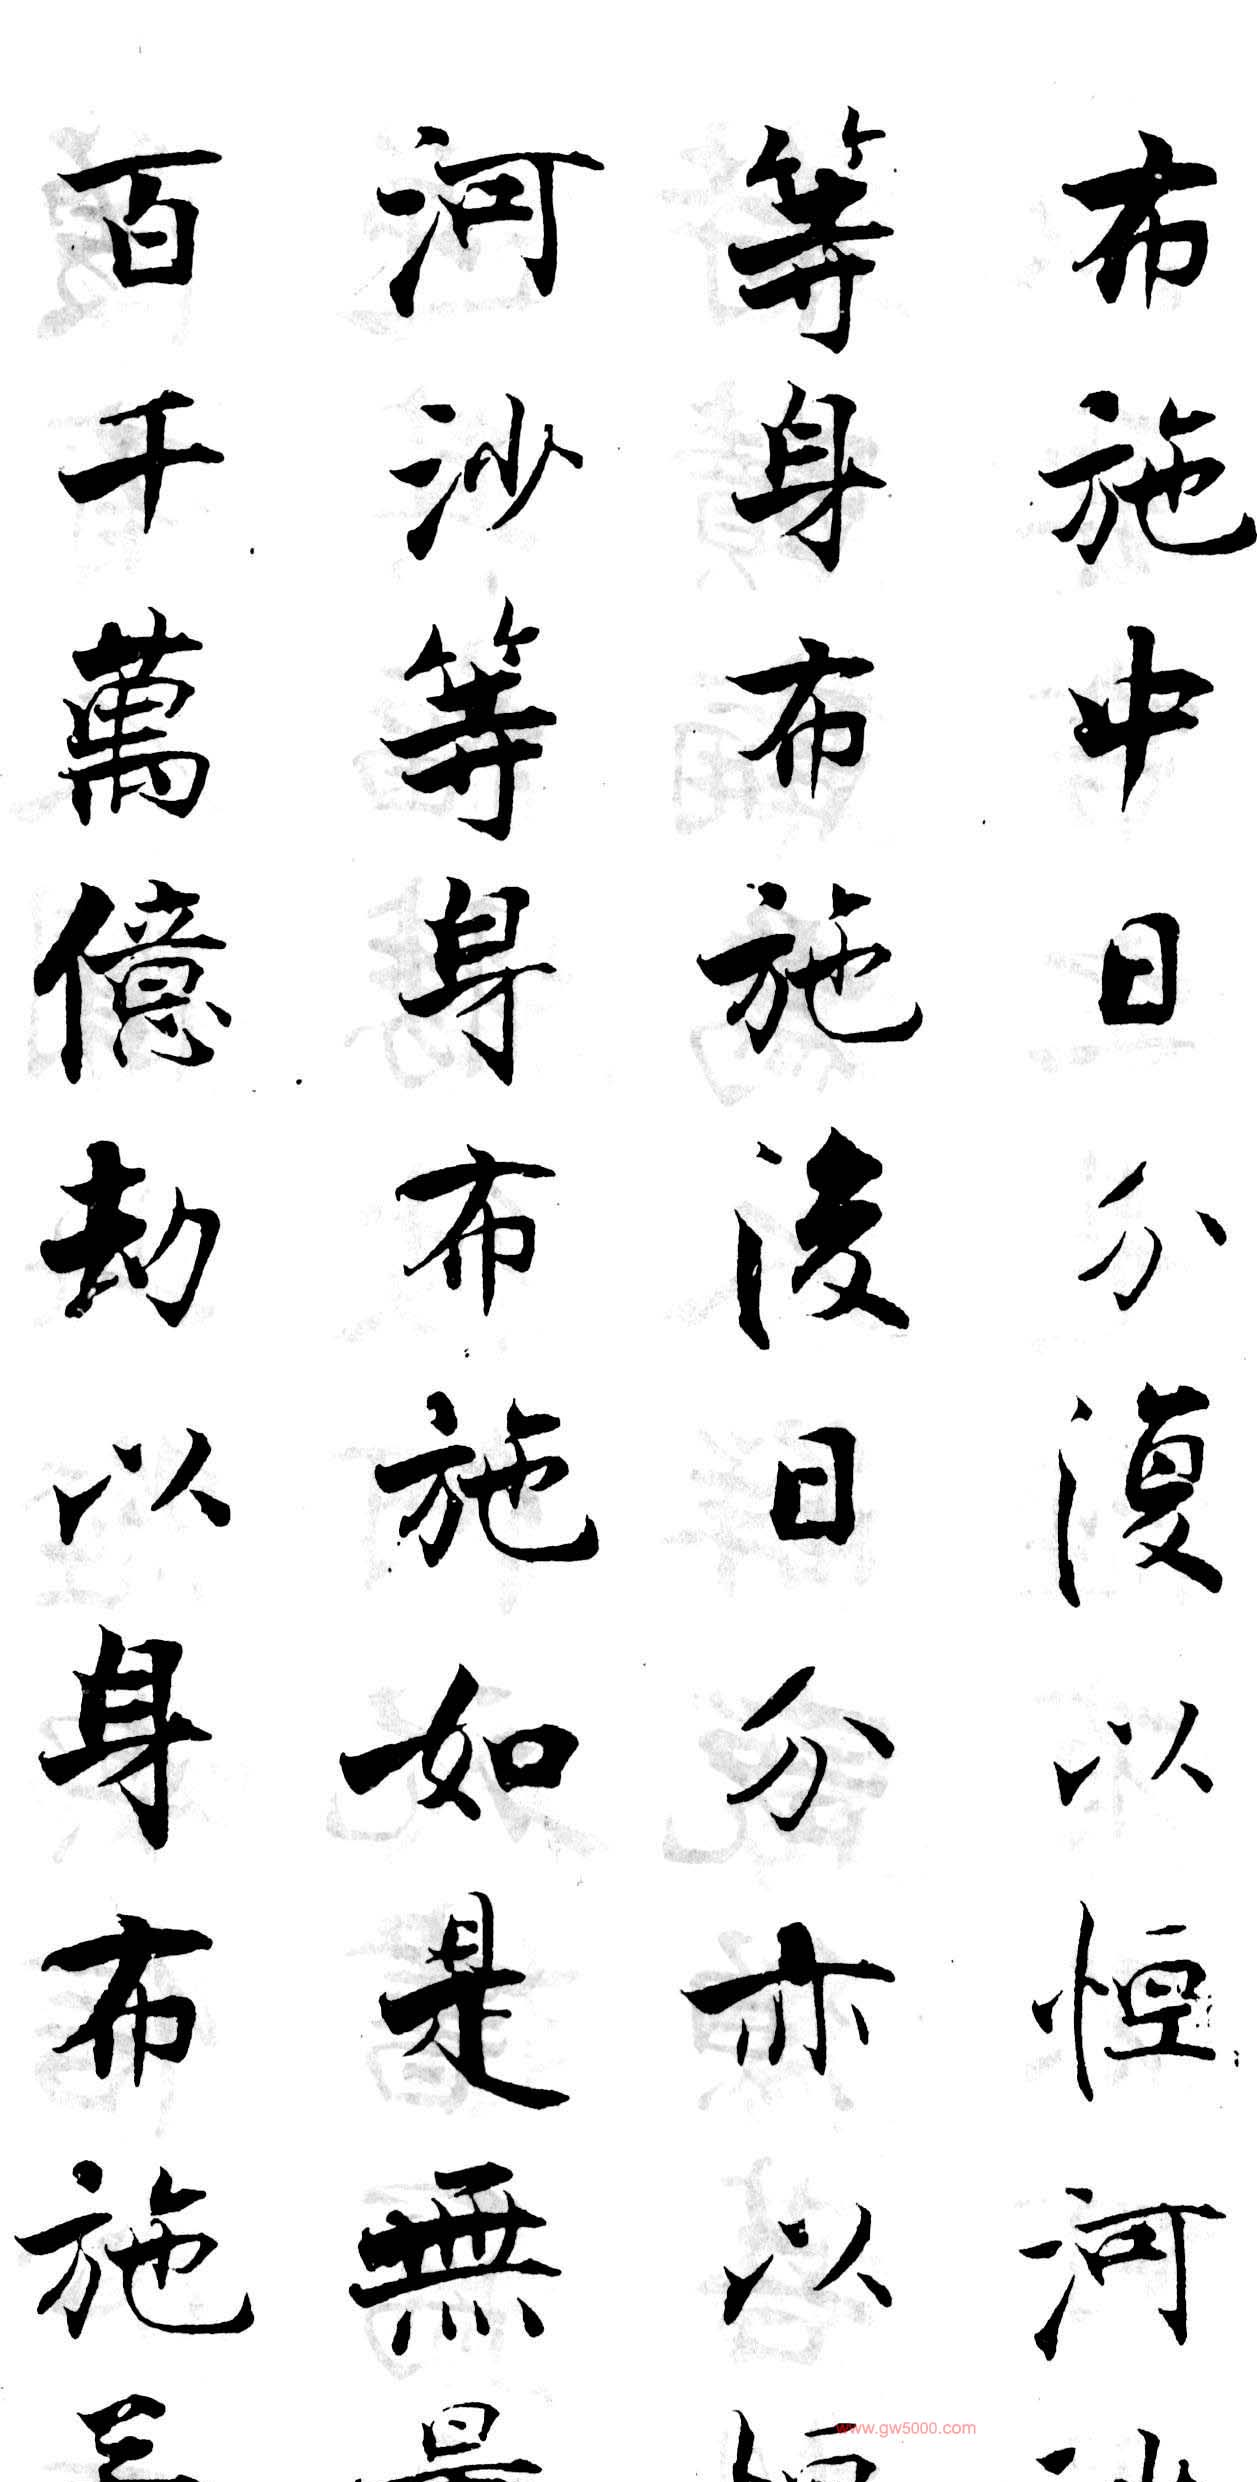 布施中日分復以恒河沙
等身布施後日分亦以恒
河沙等身布施如是無量
百千萬億劫以身布施
www.gw5000.com